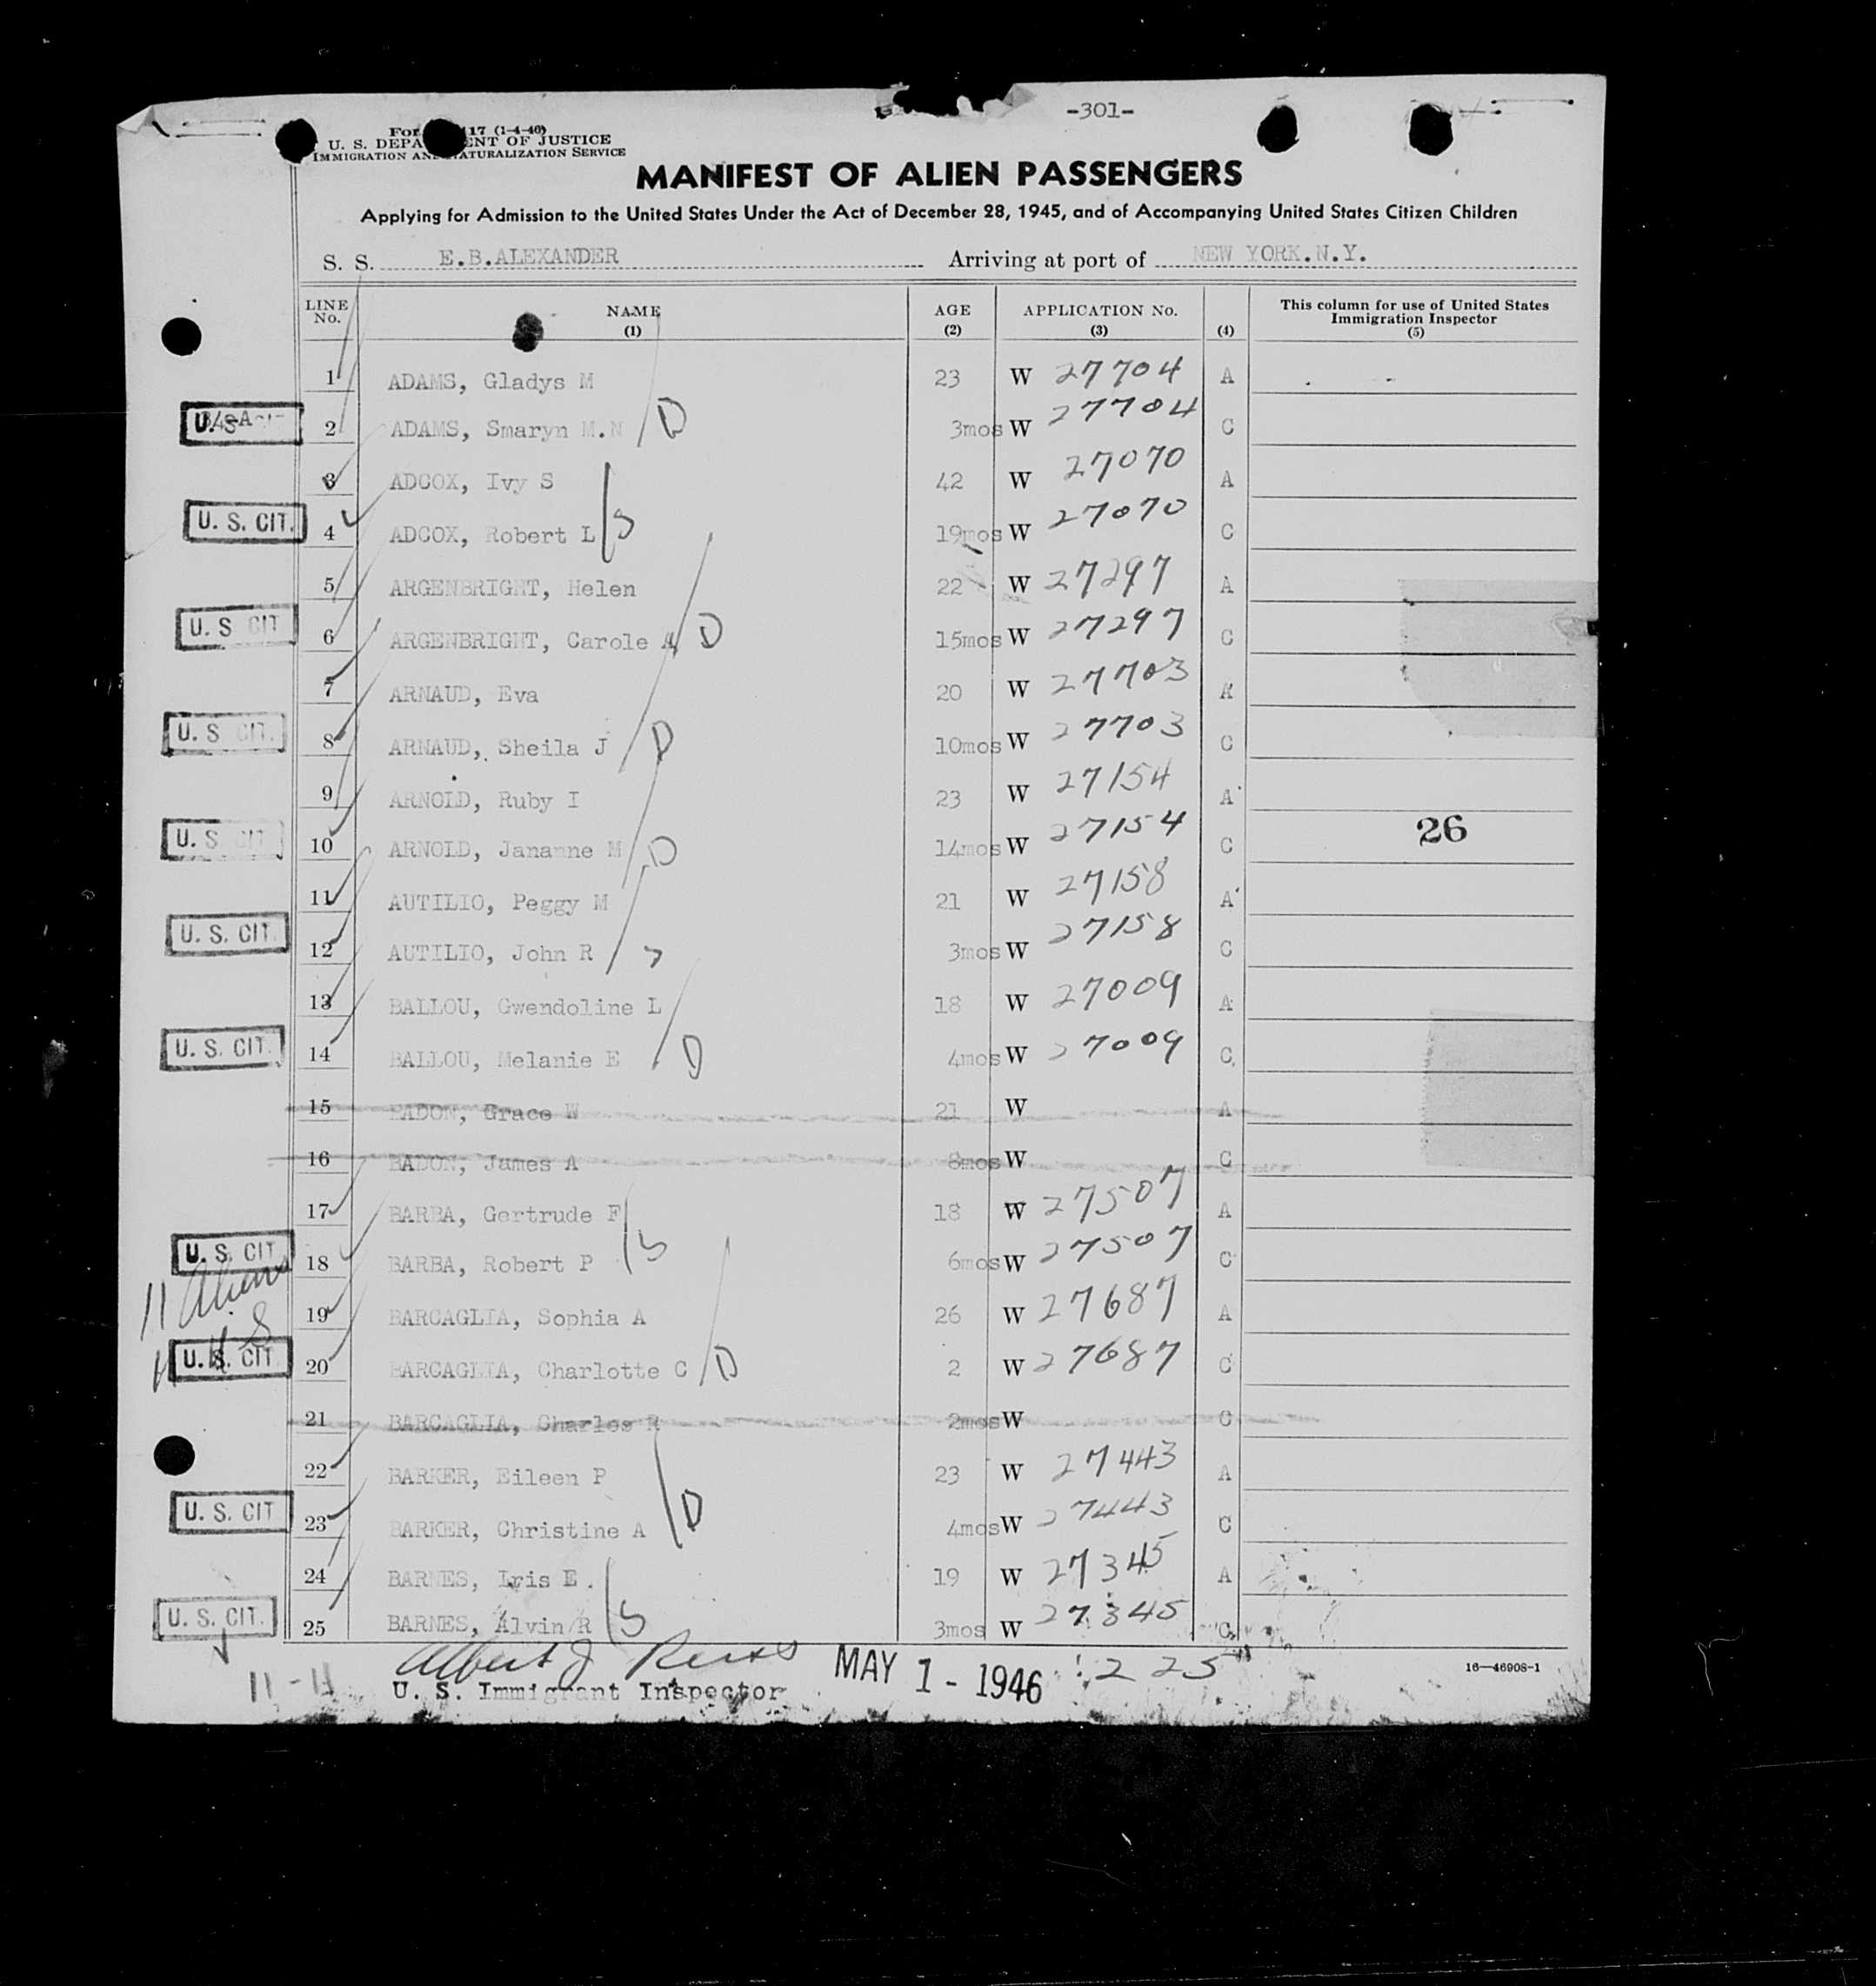 -301-
17 (1-4-46)
U. S. DEPA ENT OF JUSTICE
IMMIGRATION AND NATURALIZATION SERVICE
MANIFEST OF ALIEN PASSENGERS
Applying for Admission to the United States Under the Act of December 28, 1945, and of Accompanying United States Citizen Children
S. S. E.B.ALEXANDER Arriving at port of NEW YORK.N.Y.
LINE No. NAME (1) AGE (2) APPLICATION No. (3) (4) This column for use of United States Immigration Inspector (5)
1 ADAMS, Gladys M 23 W 27704 A
2 ADAMS, Smaryn M.N D 3mos W 27704 C
3 ADCOX, Ivy S 42 W 27070 A
U. S. CIT. 4 ADCOX, Robert L S 19mos W 27070 C
5 ARGENBRIGHT, Helen 22 W 27297 A
U. S. CIT 6 ARGENBRIGHT, Carole A D 15mos W 27297 C
7 ARNAUD, Eva 20 W 27703 A
U. S. CIT. 8 ARNAUD, Sheila J D 10mos W 27703 C
9 ARNOLD, Ruby I 23 W 27154 A
U. S. CIT 10 ARNOLD, Jananne M D 14mos W 27154 C 26
11 AUTILIO, Peggy M 21 W 27158 A
U. S. CIT. 12 AUTILIO, John R 3mos W 27158 C
13 BALLOU, Gwendoline L 18 W 27009 A
U. S. CIT. 14 BALLOU, Melanie E D 4mos W 27009 C
15 BADON, Grace W 21 W A
16 BADON, James A 8mos W C
17 BARBA, Gertrude F 18 W 27507 A
U. S. CIT 18 BARBA, Robert P S 6mos W 27507 C
11 Aliens
19 BARCAGLIA, Sophia A 26 W 27687 A
U. S. CIT. 20 BARCAGLIA, Charlotte C D 2 W 27687 C
21 BARCAGLIA, Charles R 2mos W C
22 BARKER, Eileen P 23 W 27443 A
U. S. CIT 23 BARKER, Christine A D 4mos W 27443 C
24 BARNES, Iris E. 19 W 27345 A
U. S. CIT. 25 BARNES, Alvin R S 3mos W 27345 C
11-11 Albert J MAY 1 - 1946 225 16—46908-1
U. S. Immigrant Inspector